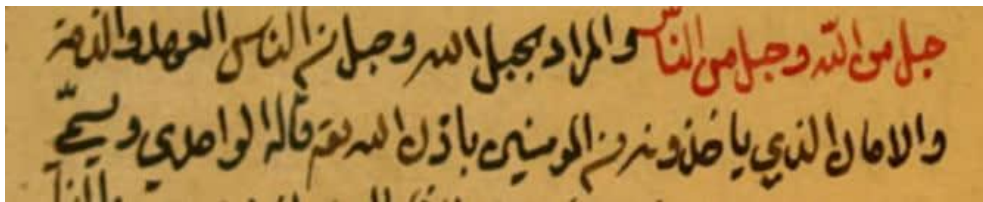 حبل من الله وحبل من الناس والمراد بحبل الله وحبل من الناس العهد والذمة
والامان الذي ياخذونه من المومنين باذن الله تع قاله الواحدي ويسمى